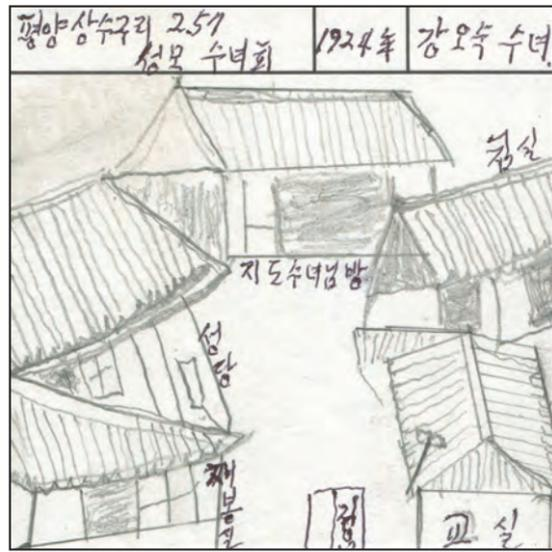 평양 상수구리 257
성모 수녀회
1924年
강오숙 수녀
침실
지도수녀님 방
성당
재봉실
교실